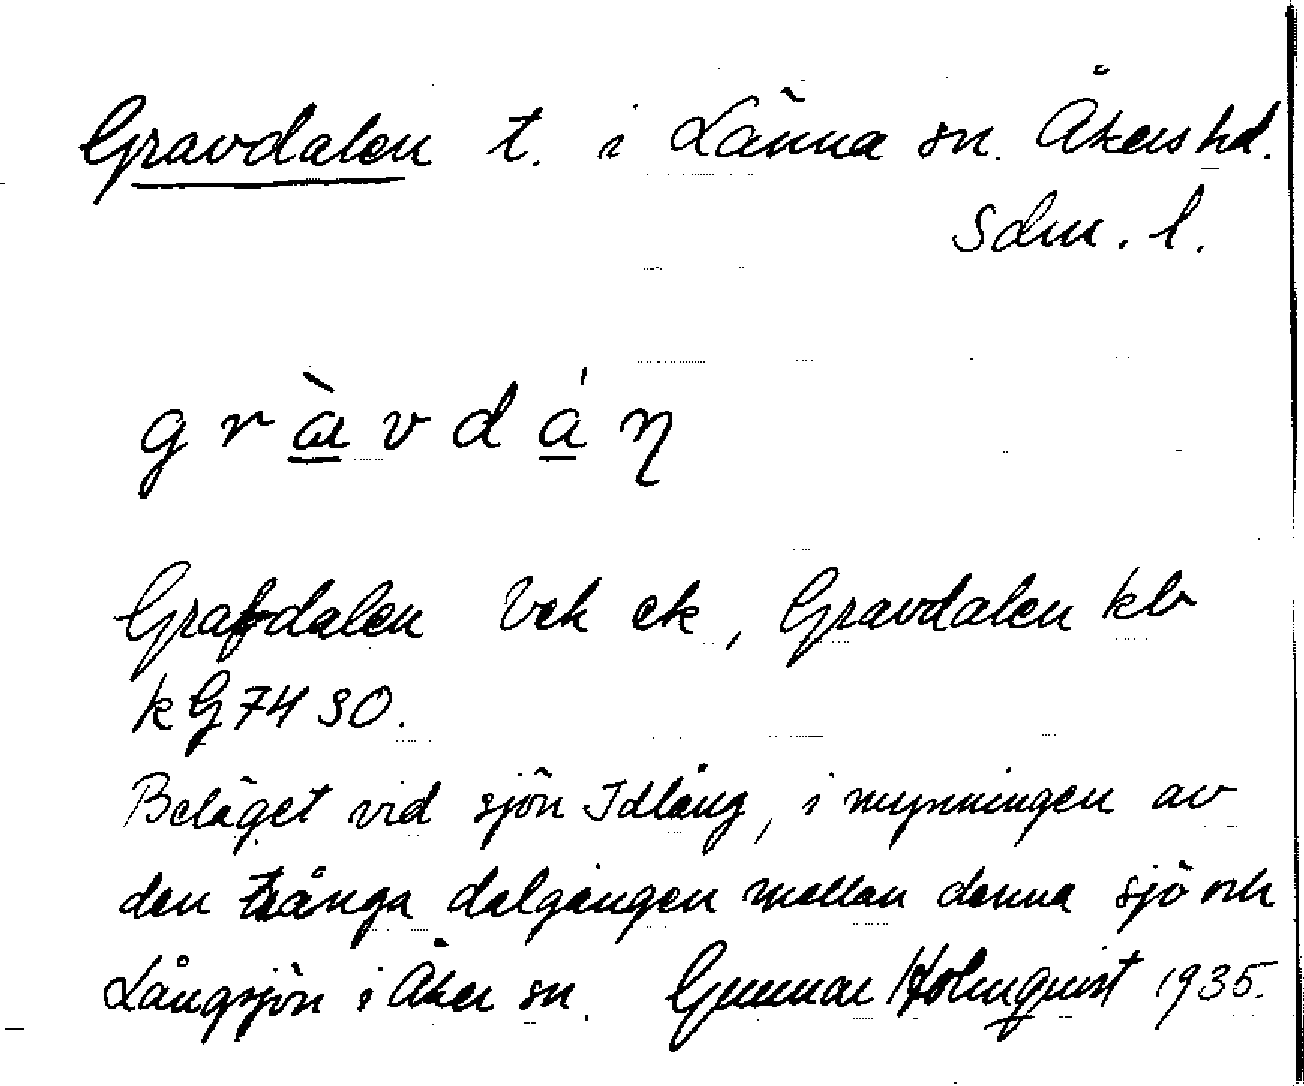 Gravdalen t. i Länna sn. Åkers hd.
Sdm. l.
g r à v d á n
Grafdalen Vek ek, Gravdalen kb
k G 74 SO.
Beläget vid sjön Idlång, i mynningen av
den trånga dalgången mellan denna sjö och
Långsjön i Åker sn. Gunnar Holmquist 1935.